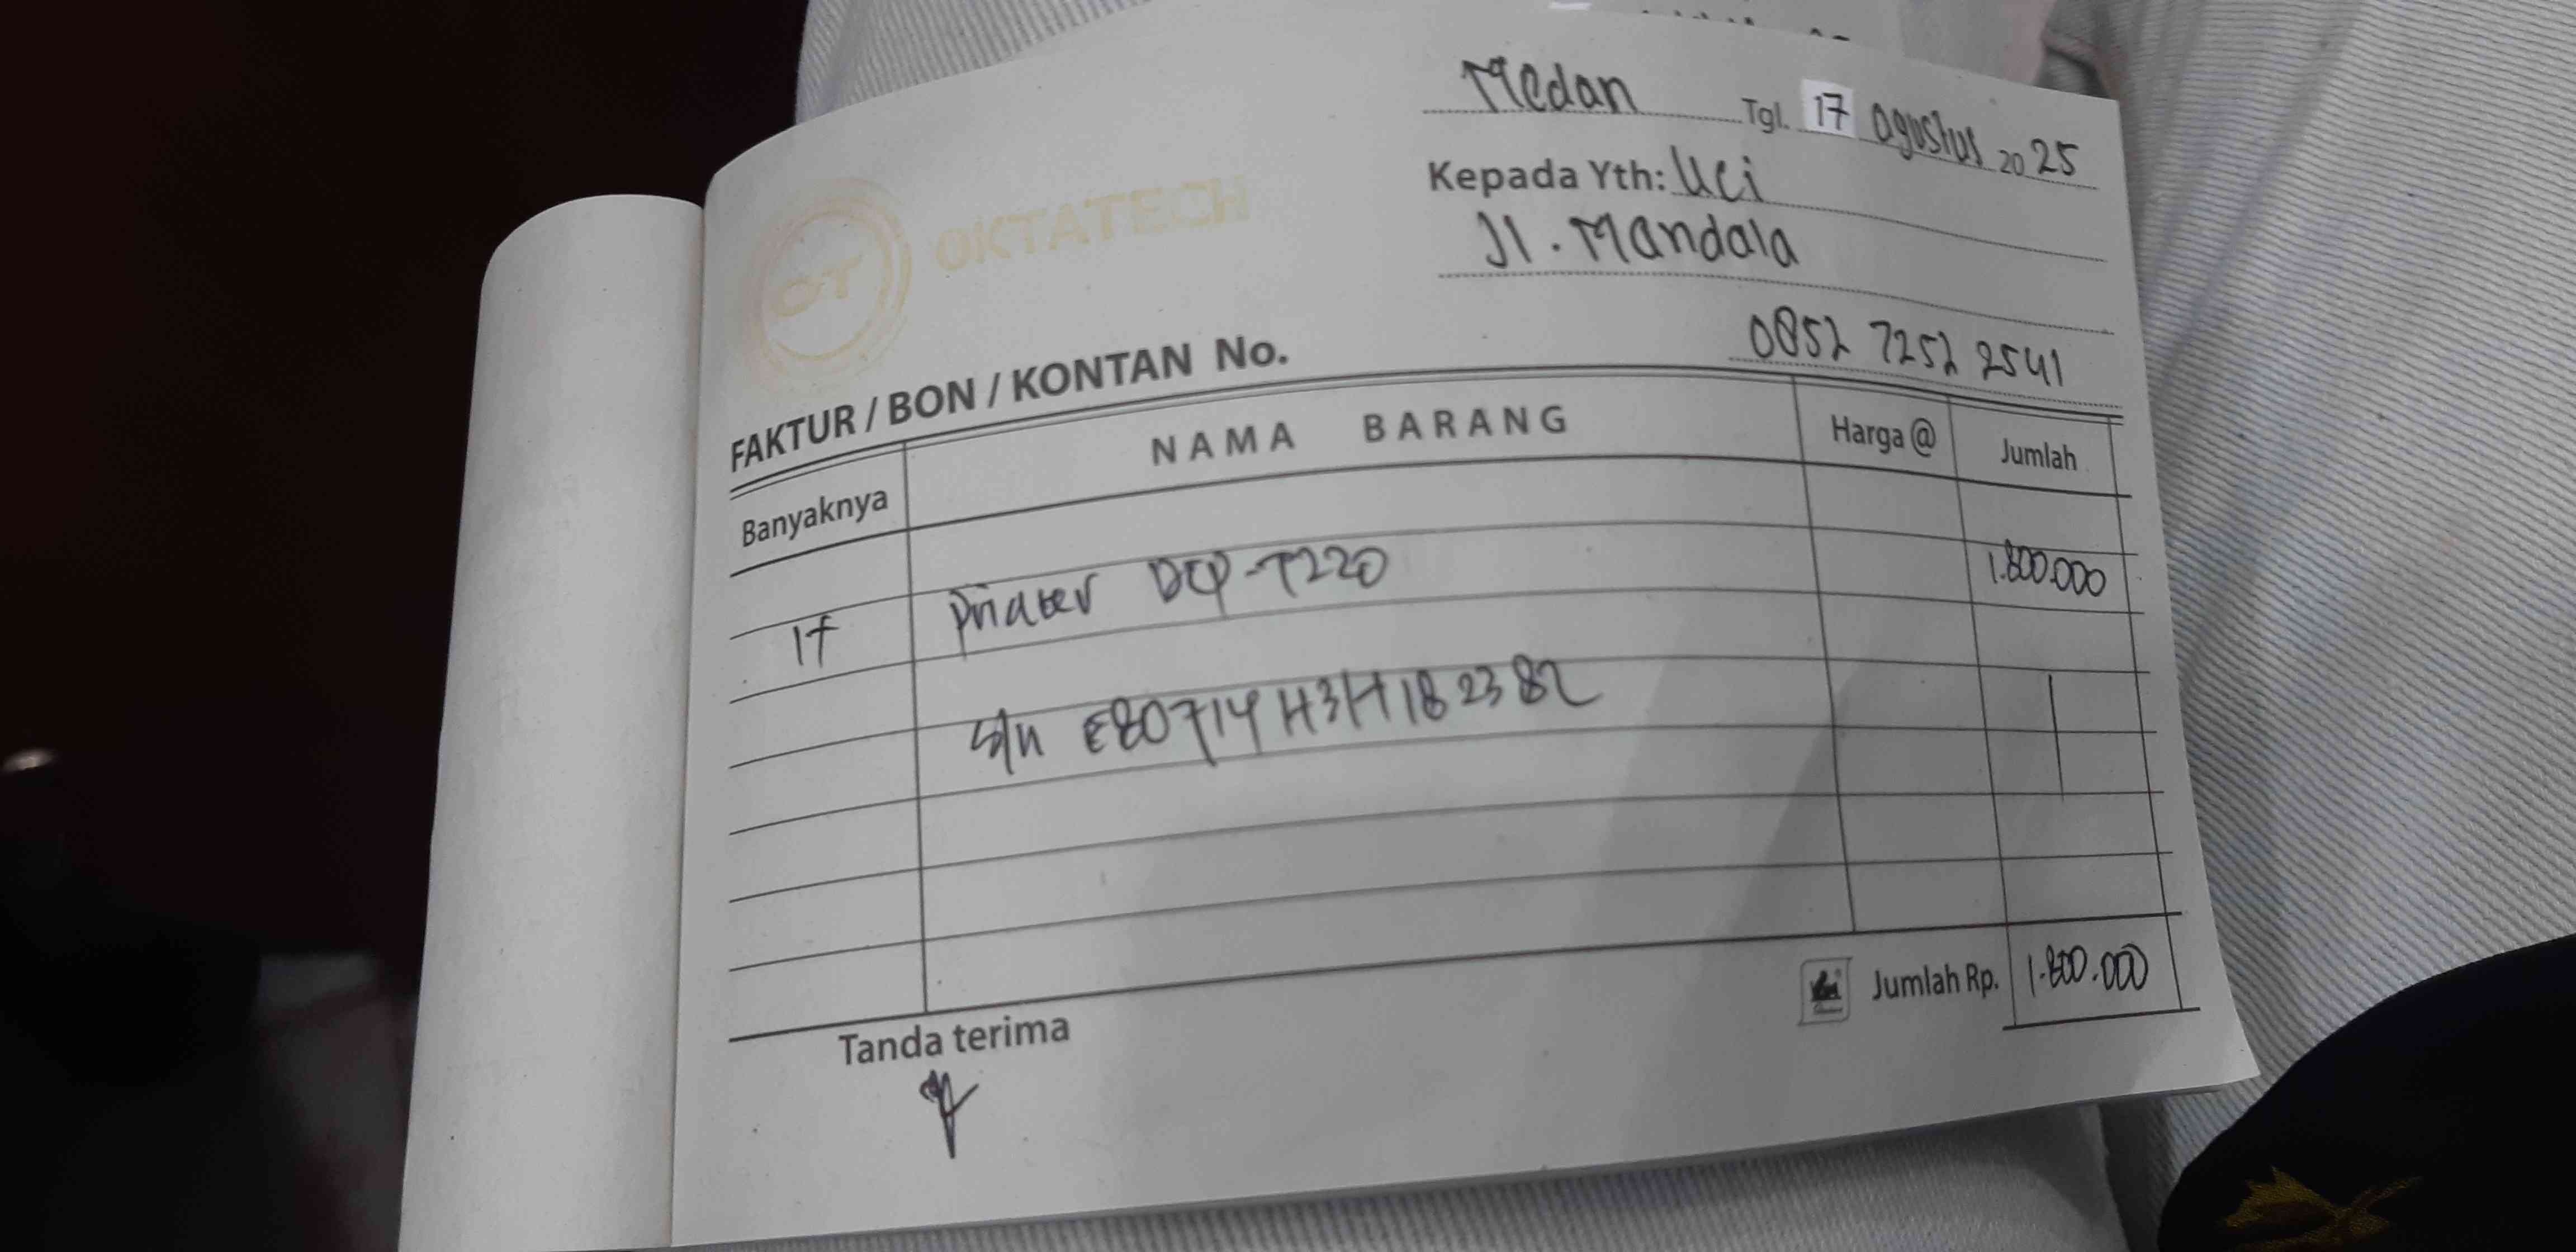 Medan Tgl. 17 Agustus 2025
Kepada Yth: Uci
Jl. Mandala
0852 7252 2541
OT OKTATECH
FAKTUR / BON / KONTAN No.
Banyaknya NAMA BARANG Harga @ Jumlah
1 Printer DCP-T220 1.800.000
S/N E80714H3H182382
Jumlah Rp. 1.800.000
Tanda terima